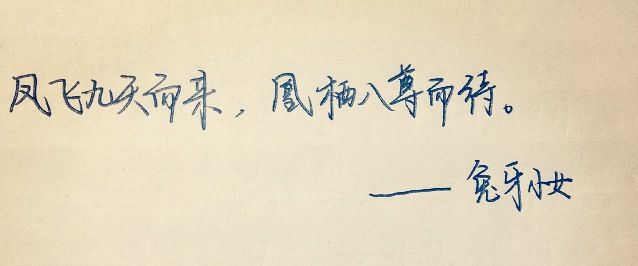 凤飞九天而来，凰栖八尊而待。
——兔牙小女